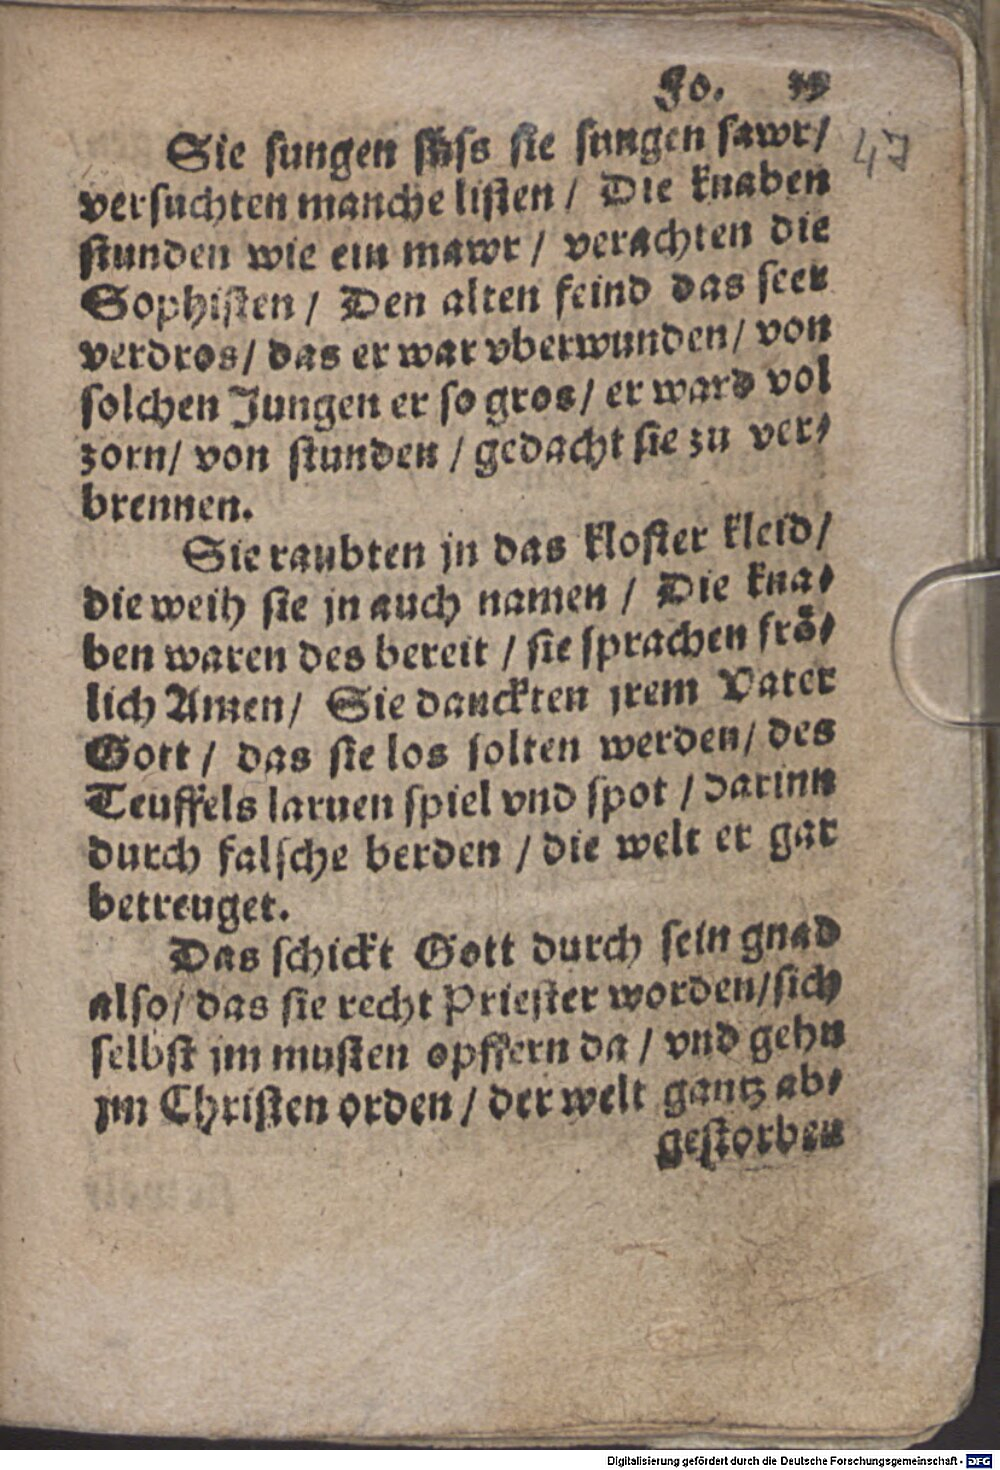 Jo. 39
47
Sie sungen süss sie sungen sawr/
versuchten manche listen / Die knaben
stunden wie ein mawr / verachten die
Sophisten / Den alten feind das seer
verdros/ das er war vberwunden/ von
solchen Jungen er so gros/ er ward vol
zorn/ von stunden / gedacht sie zu ver⸗
brennen.
Sie raubten jn das kloster kleid/
die weih sie jn auch namen / Die kna⸗
ben waren des bereit / sie sprachen frö⸗
lich Amen/ Sie danckten jrem Vater
Gott / das sie los solten werden/ des
Teuffels laruen spiel vnd spot / darinn
durch falsche berden / die welt er gar
betreuget.
Das schickt Gott durch sein gnad
also/ das sie recht Priester worden/sich
selbst jm musten opffern da / vnd gehn
jm Christen orden / der welt gantz ab⸗
gestorben
Digitalisierung gefördert durch die Deutsche Forschungsgemeinschaft - DFG